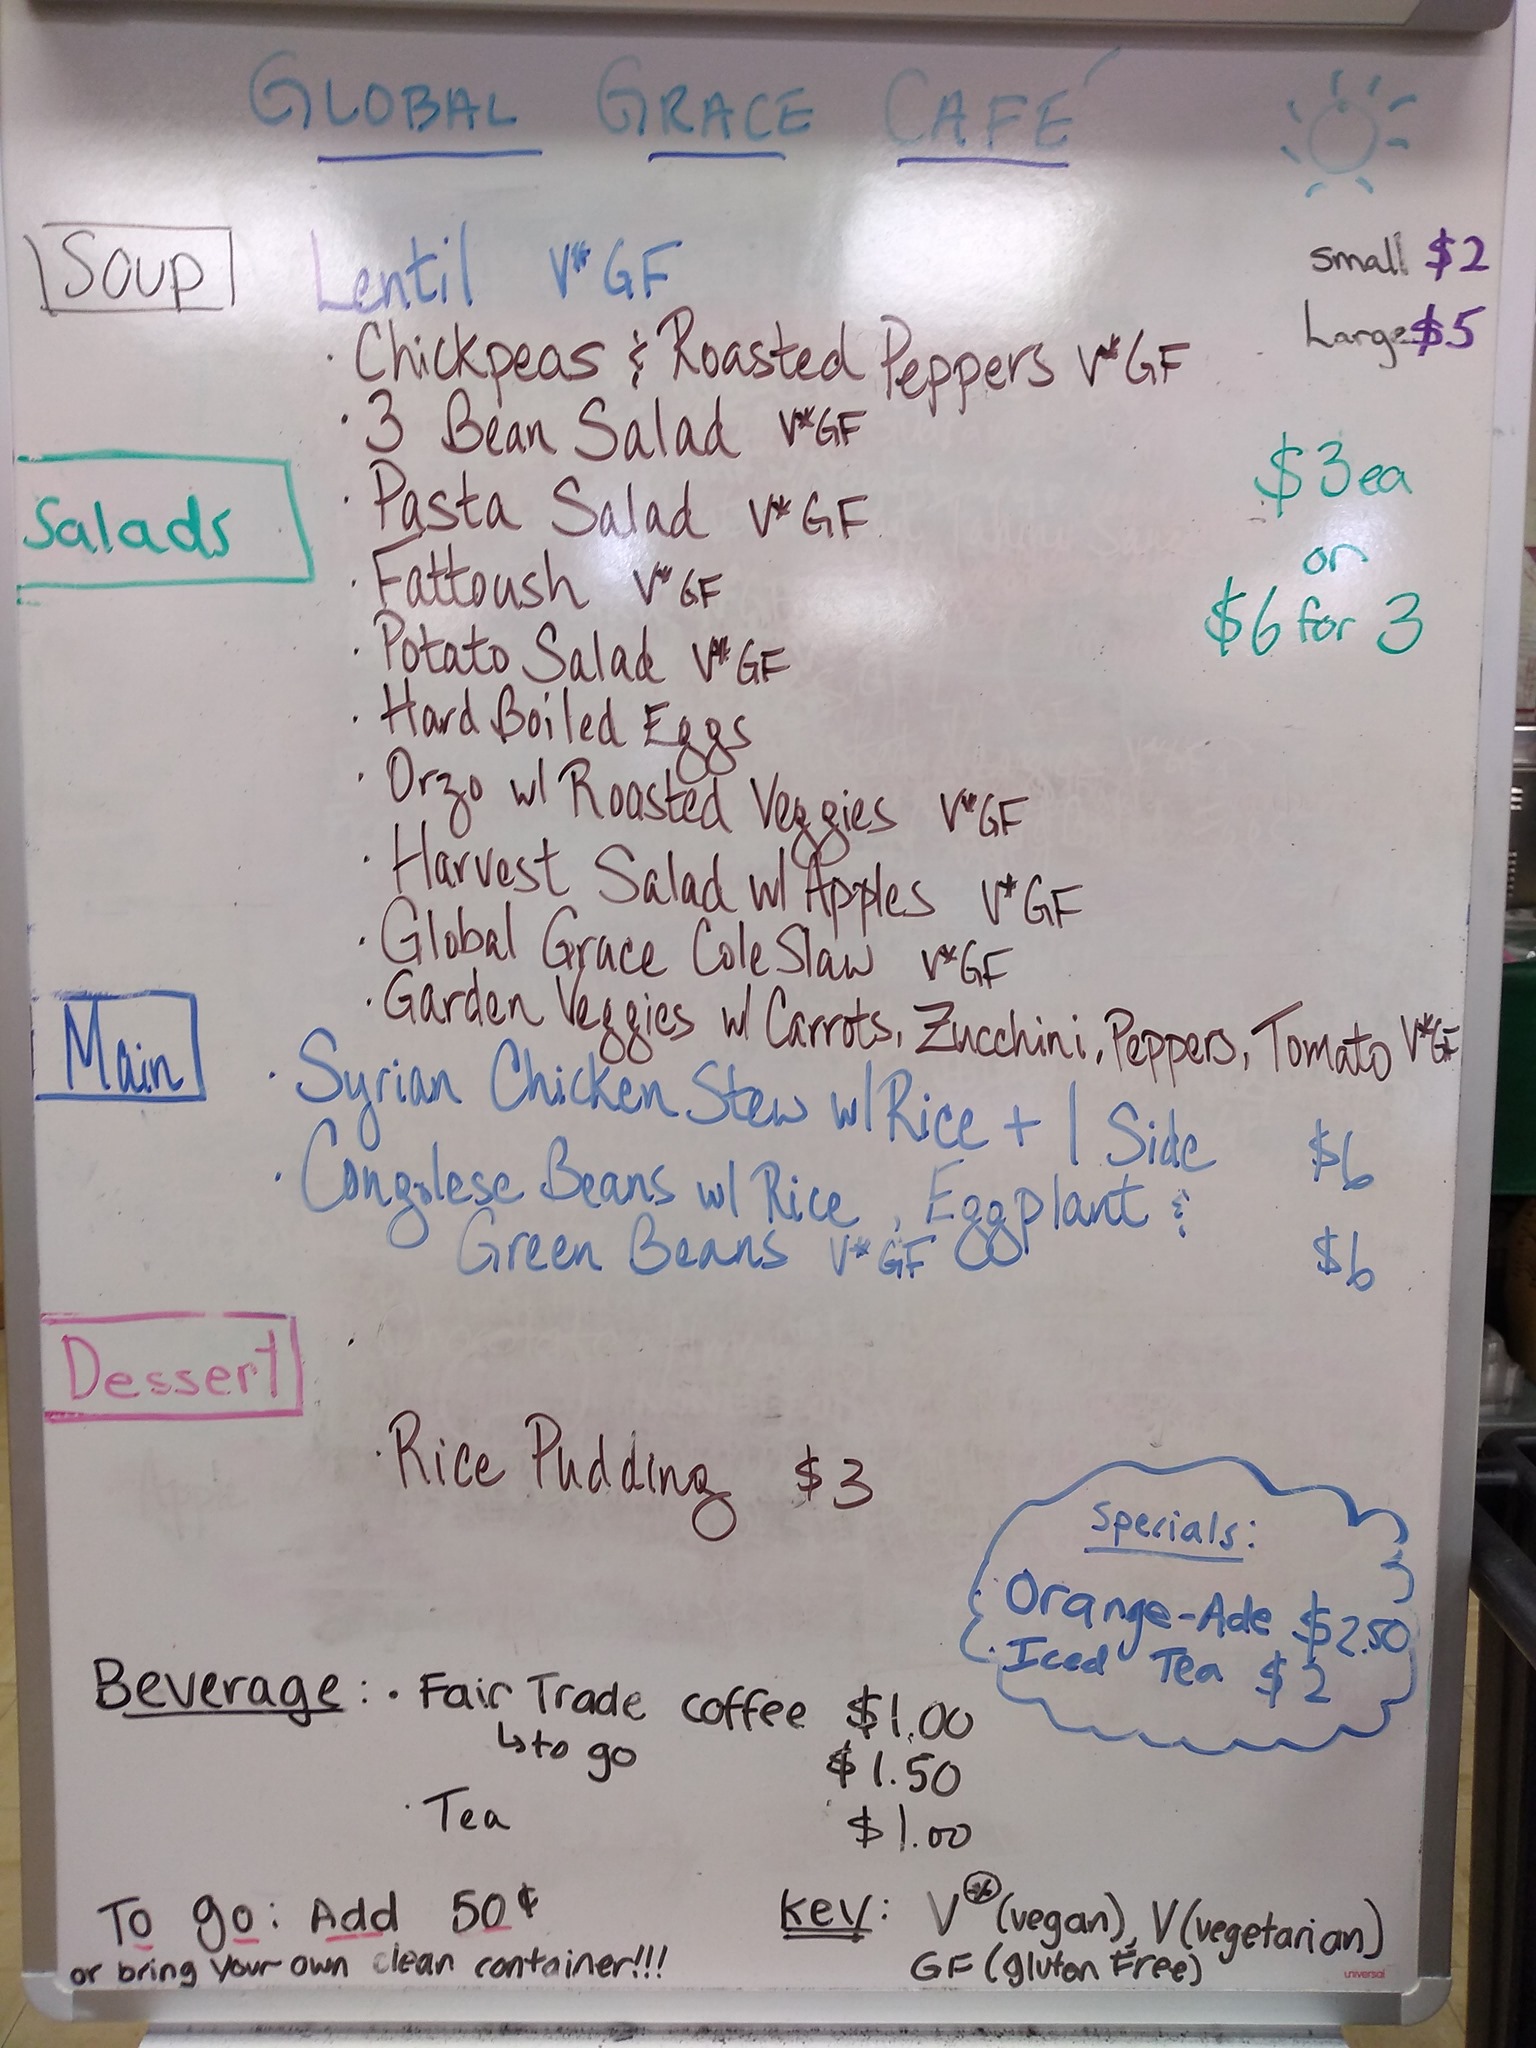 GLOBAL GRACE CAFÉ
Soup
Lentil V* GF
Small $2
Large $5
· Chickpeas & Roasted Peppers V* GF
· 3 Bean Salad V* GF
Salads
· Pasta Salad V* GF
· Fattoush V* GF
· Potato Salad V* GF
· Hard Boiled Eggs
· Orzo w/ Roasted Veggies V* GF
· Harvest Salad w/ Apples V* GF
· Global Grace Cole Slaw V* GF
· Garden Veggies w/ Carrots, Zucchini, Peppers, Tomato V* GF
$3 ea
or
$6 for 3
Main
· Syrian Chicken Stew w/ Rice + 1 Side $6
· Congolese Beans w/ Rice, Eggplant &
Green Beans V* GF $6
Dessert
· Rice Pudding $3
Specials:
Orange-Ade $2.50
Iced Tea $2
Beverage: · Fair Trade coffee $1.00
↳ to go $1.50
· Tea $1.00
To go: Add 50¢
or bring your own clean container!!!
Key: V* (vegan), V (vegetarian)
GF (gluten Free)
universal